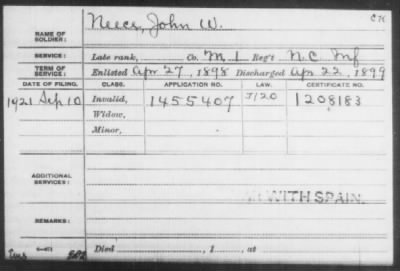 Neece, John W.
C N
NAME OF SOLDIER:
SERVICE: Late rank, Co. M 1 Reg't N.C. Inf
TERM OF SERVICE: Enlisted Apr 27, 1898 Discharged Apr 22, 1899
DATE OF FILING. CLASS. APPLICATION NO. LAW. CERTIFICATE NO.
1921 Sep 10 Invalid, 1455407 J/20 1208183
Widow,
Minor,
ADDITIONAL SERVICES:
WITH SPAIN.
REMARKS:
Died , 1 , at